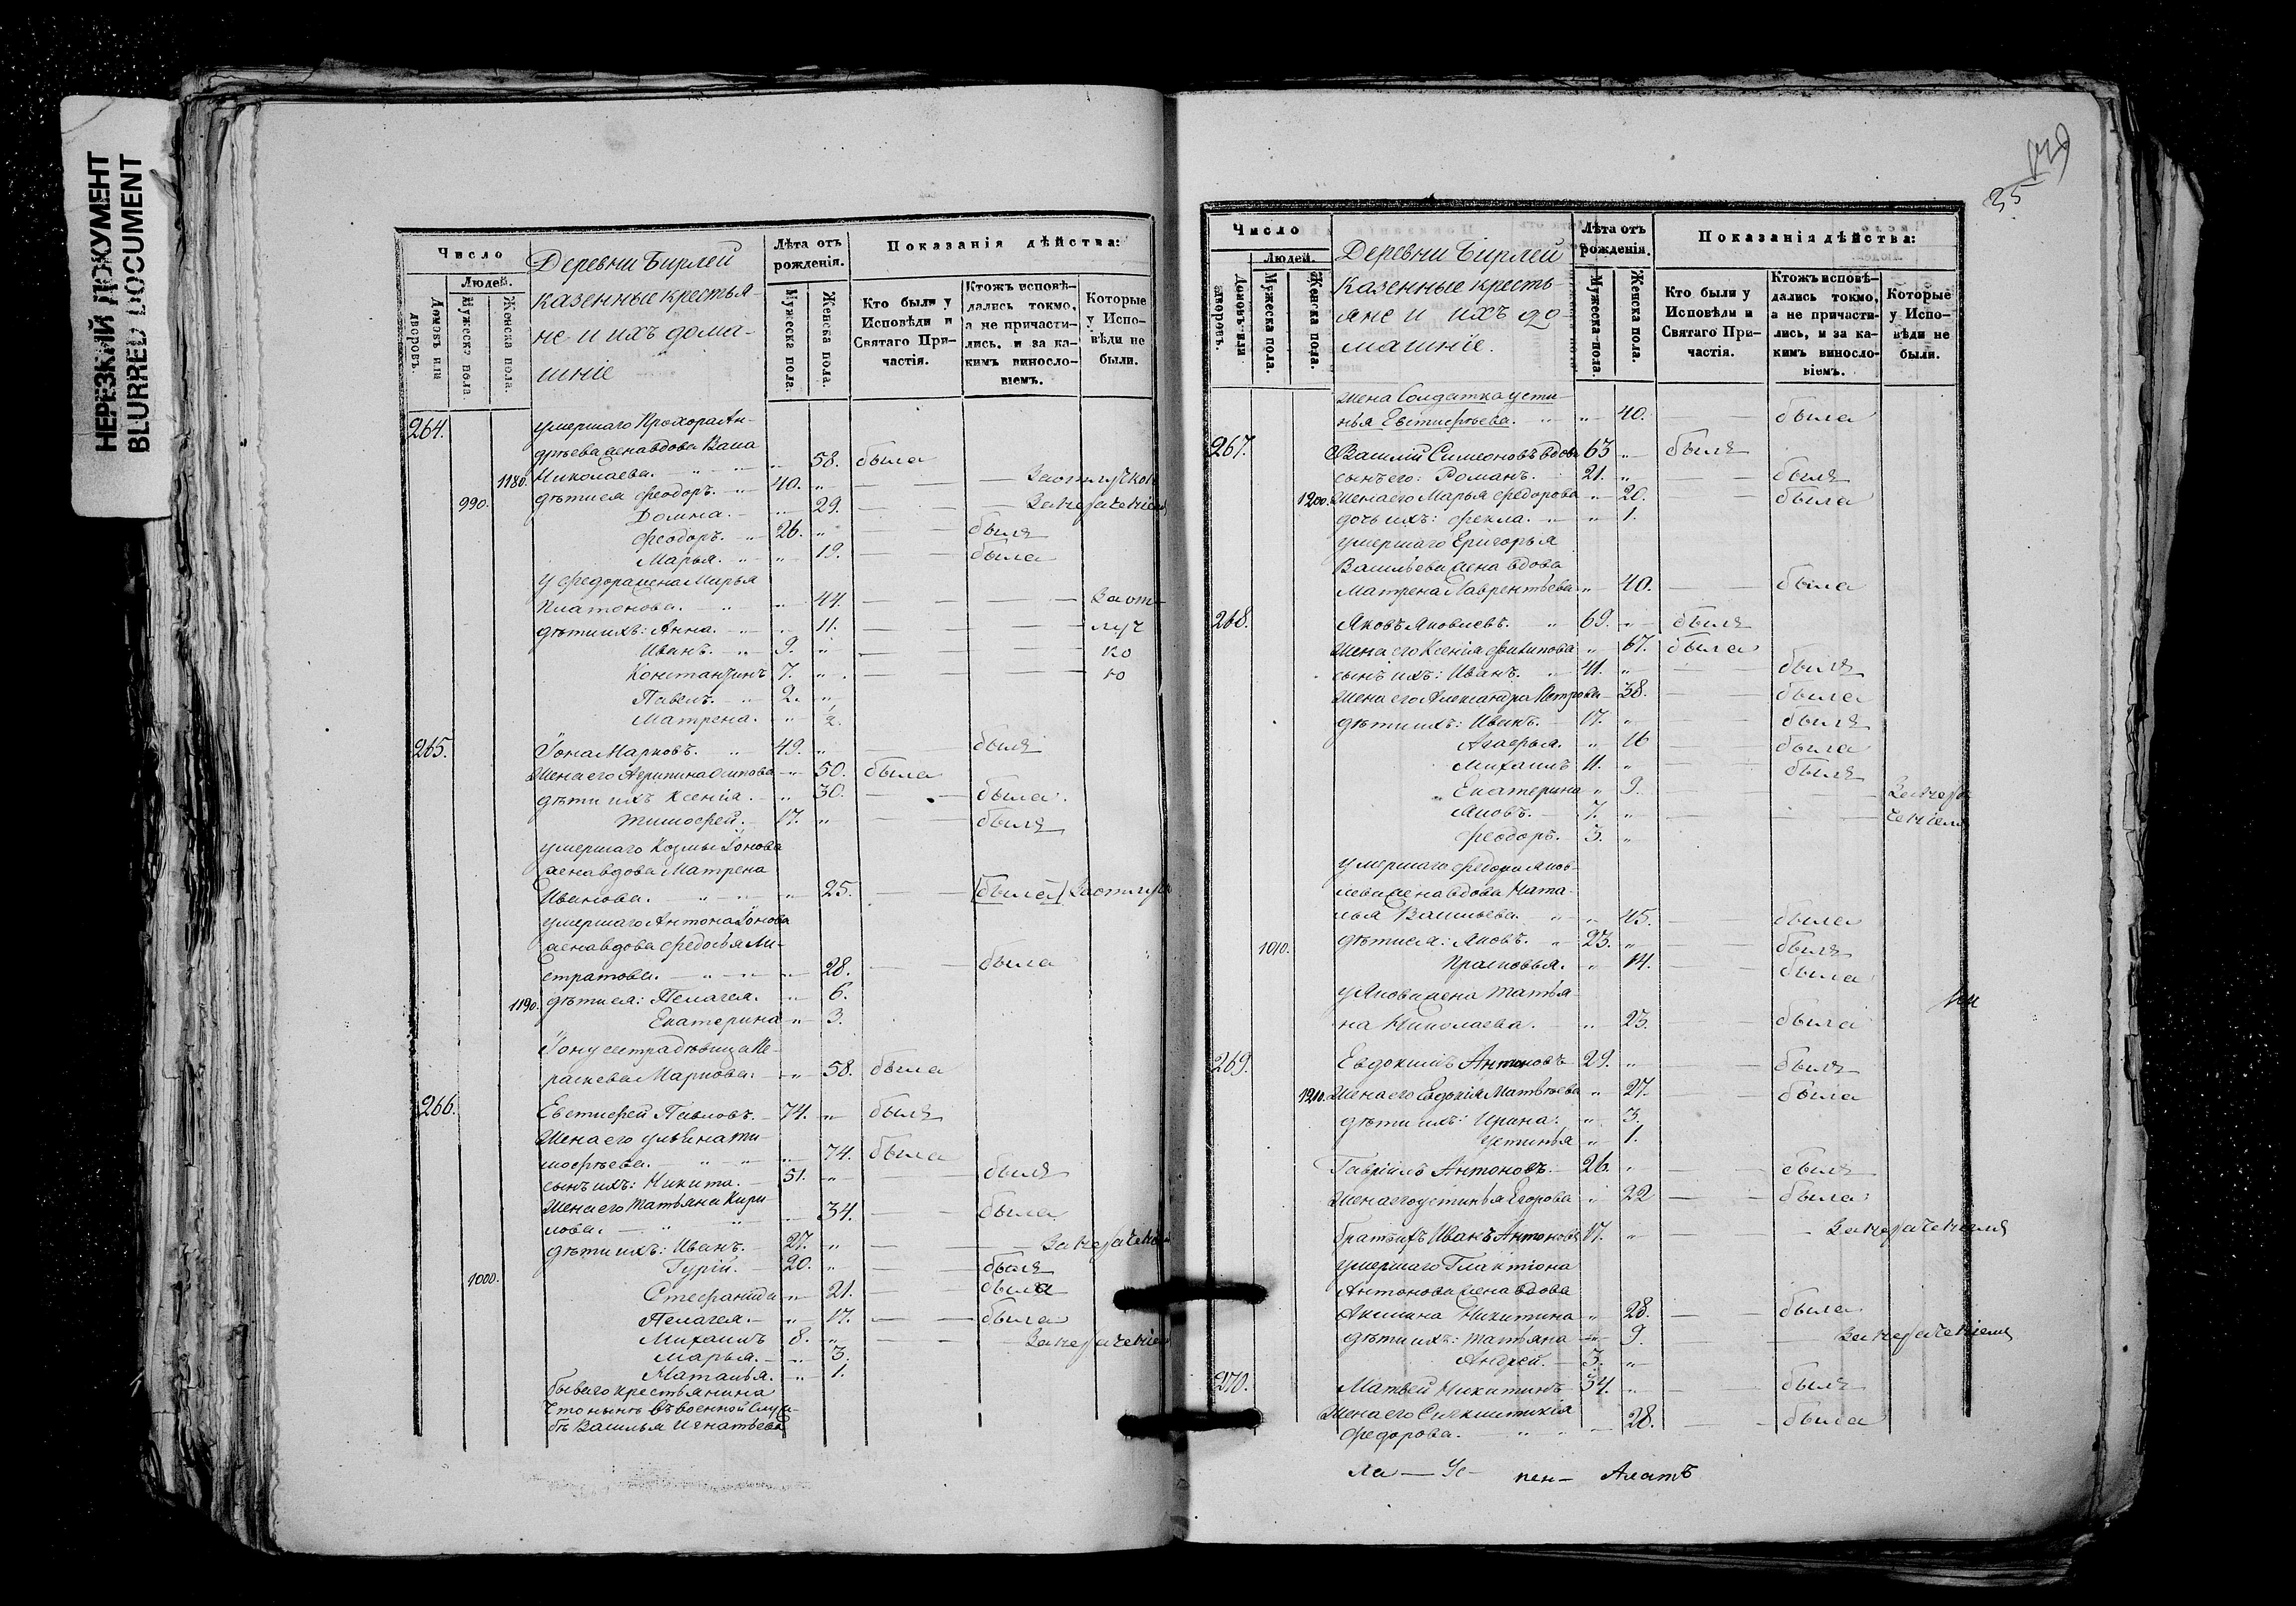 НЕРЕЗКИЙ ДОКУМЕНТ
BLURRED DOCUMENT
Число
Людей.
Домовъ или дворовъ.
Мужеска пола
Женска пола.
Деревни Бирлей
казенные крестья-
не и ихъ дома-
шніе
Лѣта отъ рожденія.
Мужеска пола.
Женска пола.
Показанія дѣйства:
Кто были у Исповѣди и Святаго Причастія.
Ктожъ исповѣдались токмо, а не причастились, и за какимъ винословіемъ.
Которые у Исповѣди не были.
264. умершаго Прохора Ан-
дрѣева жена вдова Васа
1180. Николаева. 58. была
990. дѣти ея Феодоръ. 40. За отлучкою
Домна. 29. За нерачением
Феодоръ. 26. былъ
Марья. 19. была
у Федора жена Марья
Платонова. 44. За от-
дѣти ихъ: Анна. 11. луч
Иванъ. 9. ко
Константинъ 7. ю
Павелъ. 2.
Матрена. 2.
265. Іона Марковъ. 49. былъ
Жена его Агрипина Осипова 50. была
дѣти ихъ Ксенія. 30. была.
Тимофей. 17. былъ
умершаго Козмы Іонова
жена вдова Матрена
Иванова. 25. (была) За отлуч
умершаго Антона Іонова
жена вдова Федосья Ли-
стратова. 28. была
1190. дѣти ея: Пелагея. 6.
Екатерина 3.
Іону сестра дѣвица Па-
раскева Маркова. 58. была
266. Евстифей Павловъ. 74. былъ
Жена его Ульяна Ти-
мофѣева. 74. была
сынъ ихъ: Никита. 51. былъ
Жена его Татьяна Кири-
лова. 34. была
дѣти ихъ: Иванъ. 27. За нерачением
1000. Гурій. 20. былъ
Стефанида 21. была
Пелагея. 17. была
Михаилъ 8. За нерачением
Марья. 3.
Наталья. 1.
бываго крестьянина
что нынѣ въ военной служ-
бѣ Василья Игнатьева
35
Число
Людей.
Домовъ или дворовъ.
Мужеска пола.
Женска пола.
Деревни Бирлей
Казенные кресть-
яне и ихъ до-
машніе.
Лѣта отъ рожденія.
Мужеска пола.
Женска пола.
Показанія дѣйства:
Кто были у Исповѣди и Святаго Причастія.
Ктожъ исповѣдались токмо, а не причастились, и за какимъ винословіемъ.
Которые у Исповѣди не были.
жена Солдатка Усти-
нья Евстифѣева. 40. была
267. Василій Симеоновъ вдовъ 63 былъ
сынъ его: Романъ. 21. былъ
1200. Жена его Марья Федорова 20. была
дочь ихъ: Фекла. 1.
умершаго Григорья
Васильева жена вдова
Матрена Лаврентьева 40. была
268. Яковъ Яковлевъ. 69. былъ
Жена его Ксенія Филипова 67. была
сынъ ихъ: Иванъ. 41. былъ
Жена его Александра Петрова 38. была
дѣти ихъ: Иванъ. 17. былъ
Агафья. 16 была
Михаилъ 11. былъ
Екатерина 9. За нера
Яковъ. 7. ченіем
Феодоръ. 3.
умершаго Федора Яков-
лева жена вдова Ната-
лья Васильева. 45. была
1010. дѣти ея: Яковъ. 23. былъ
Прасковья. 14. была
у Якова жена Татья-
на Николаева. 23. была
269. Евдокимъ Антоновъ 29. былъ
1210. Жена его Евдокія Матвѣева 27. была
дѣти ихъ: Ирина. 3.
Устинья 1.
Гавріилъ Антоновъ. 26. былъ
Жена его Устинья Егорова 22 была
братъ ихъ Иванъ Антоновъ 17. За нерачением
умершаго Глактіона
Антонова жена вдова
Акилина Никитина 28. была
дѣти ихъ: Татьяна 9. За нерачением
Андрей. 3.
270. Матвей Никитинъ 34. былъ
Жена его Синклитикія
Федорова. 28. была